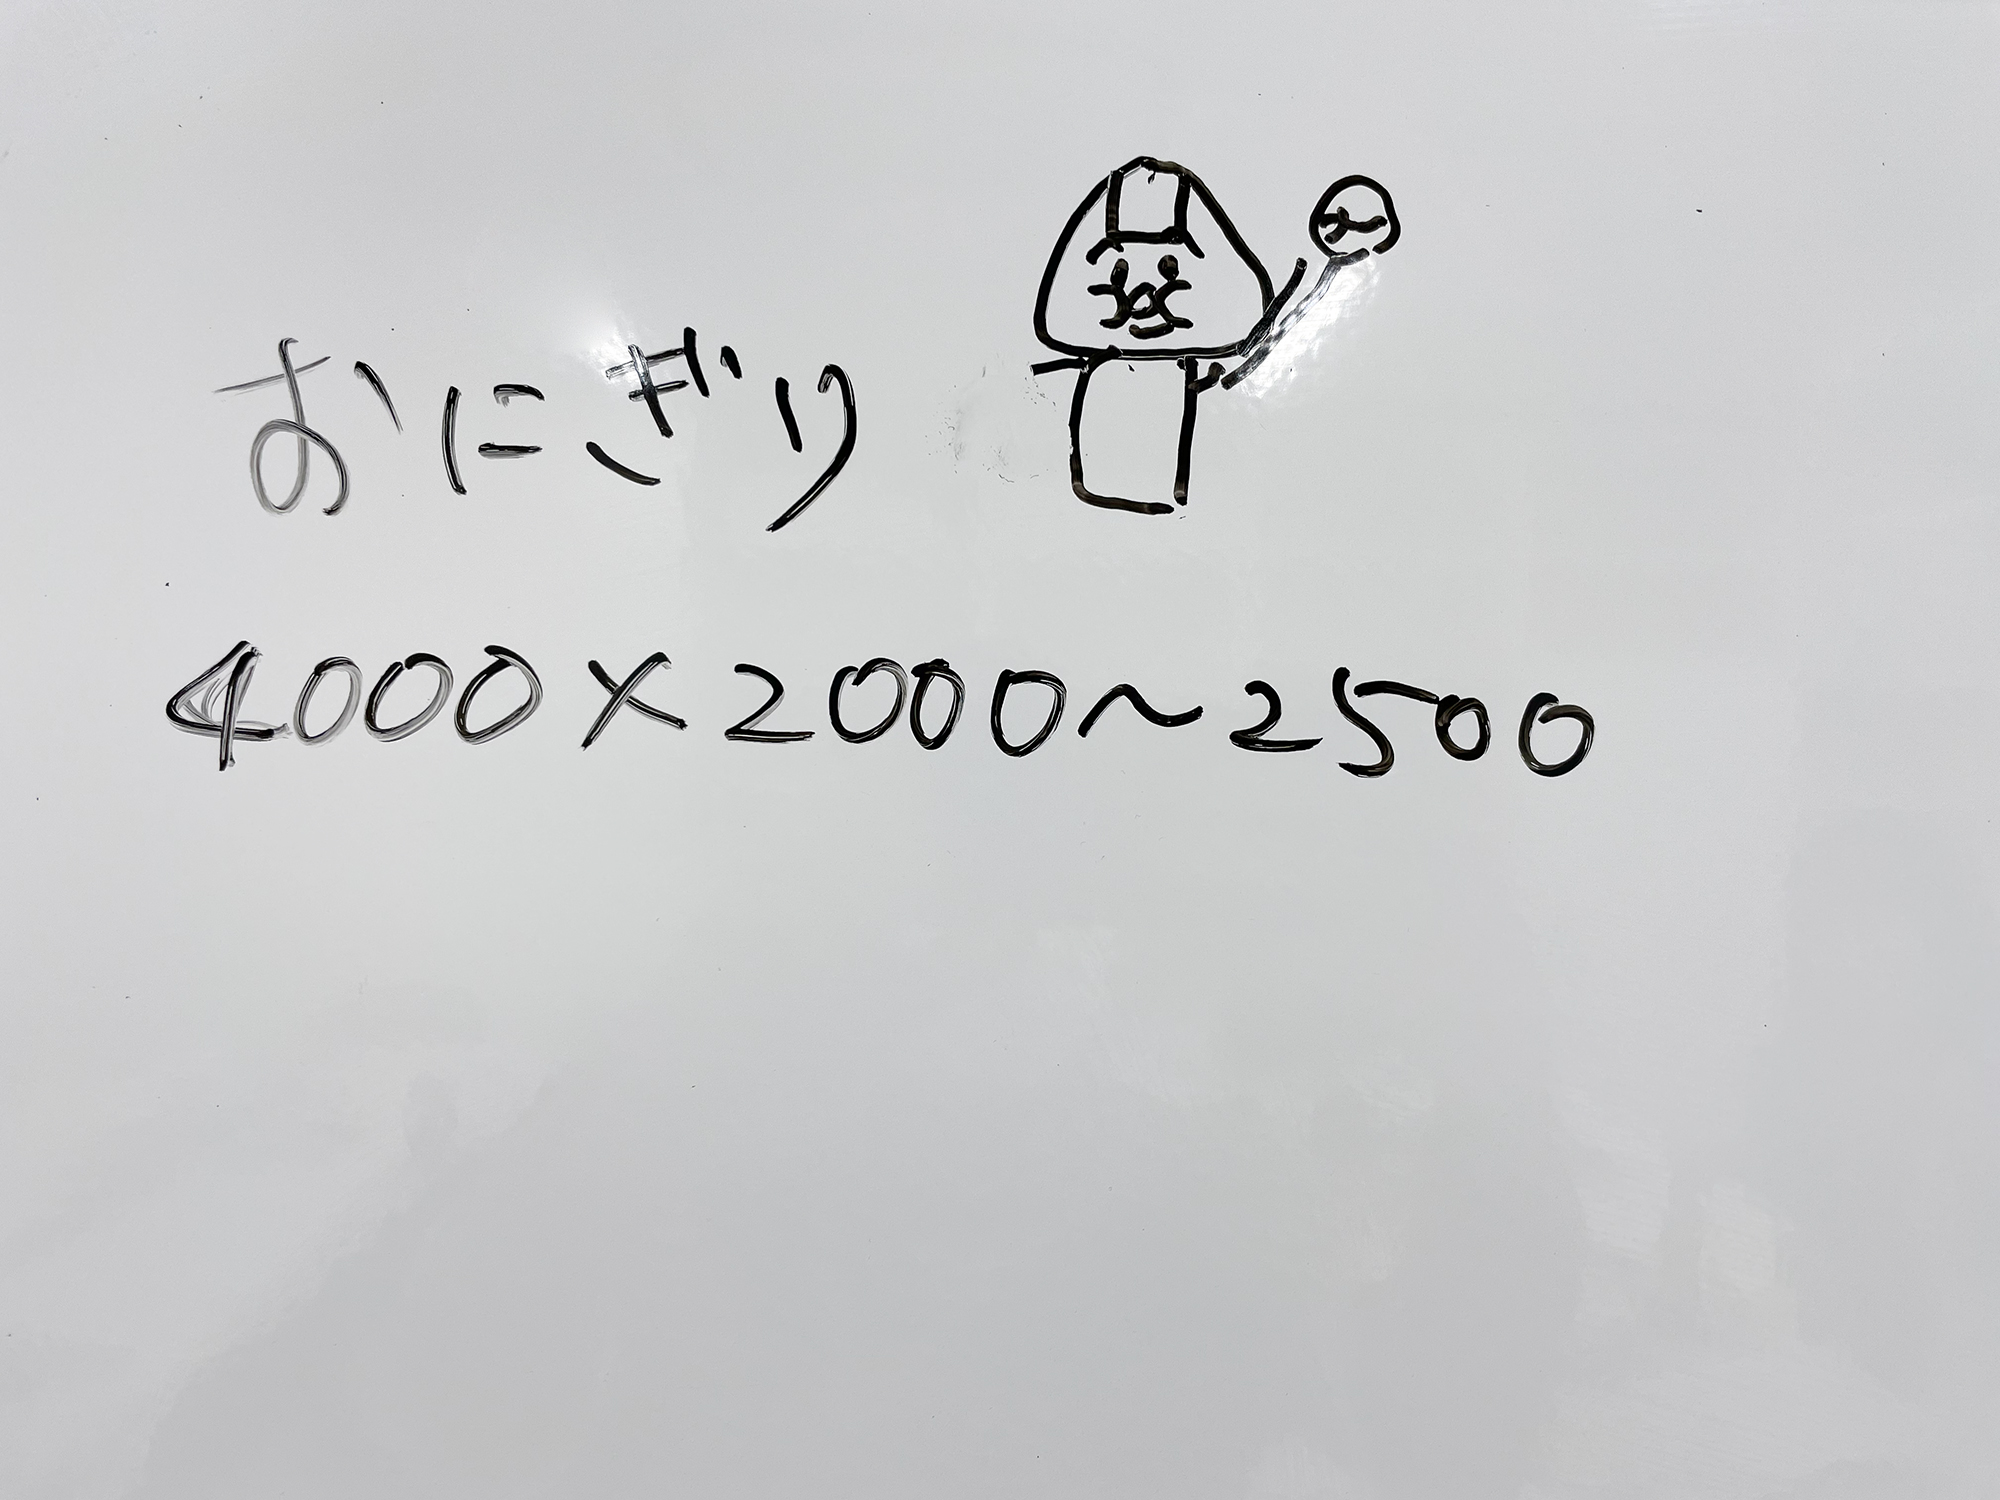 おにぎり
4000×2000~2500